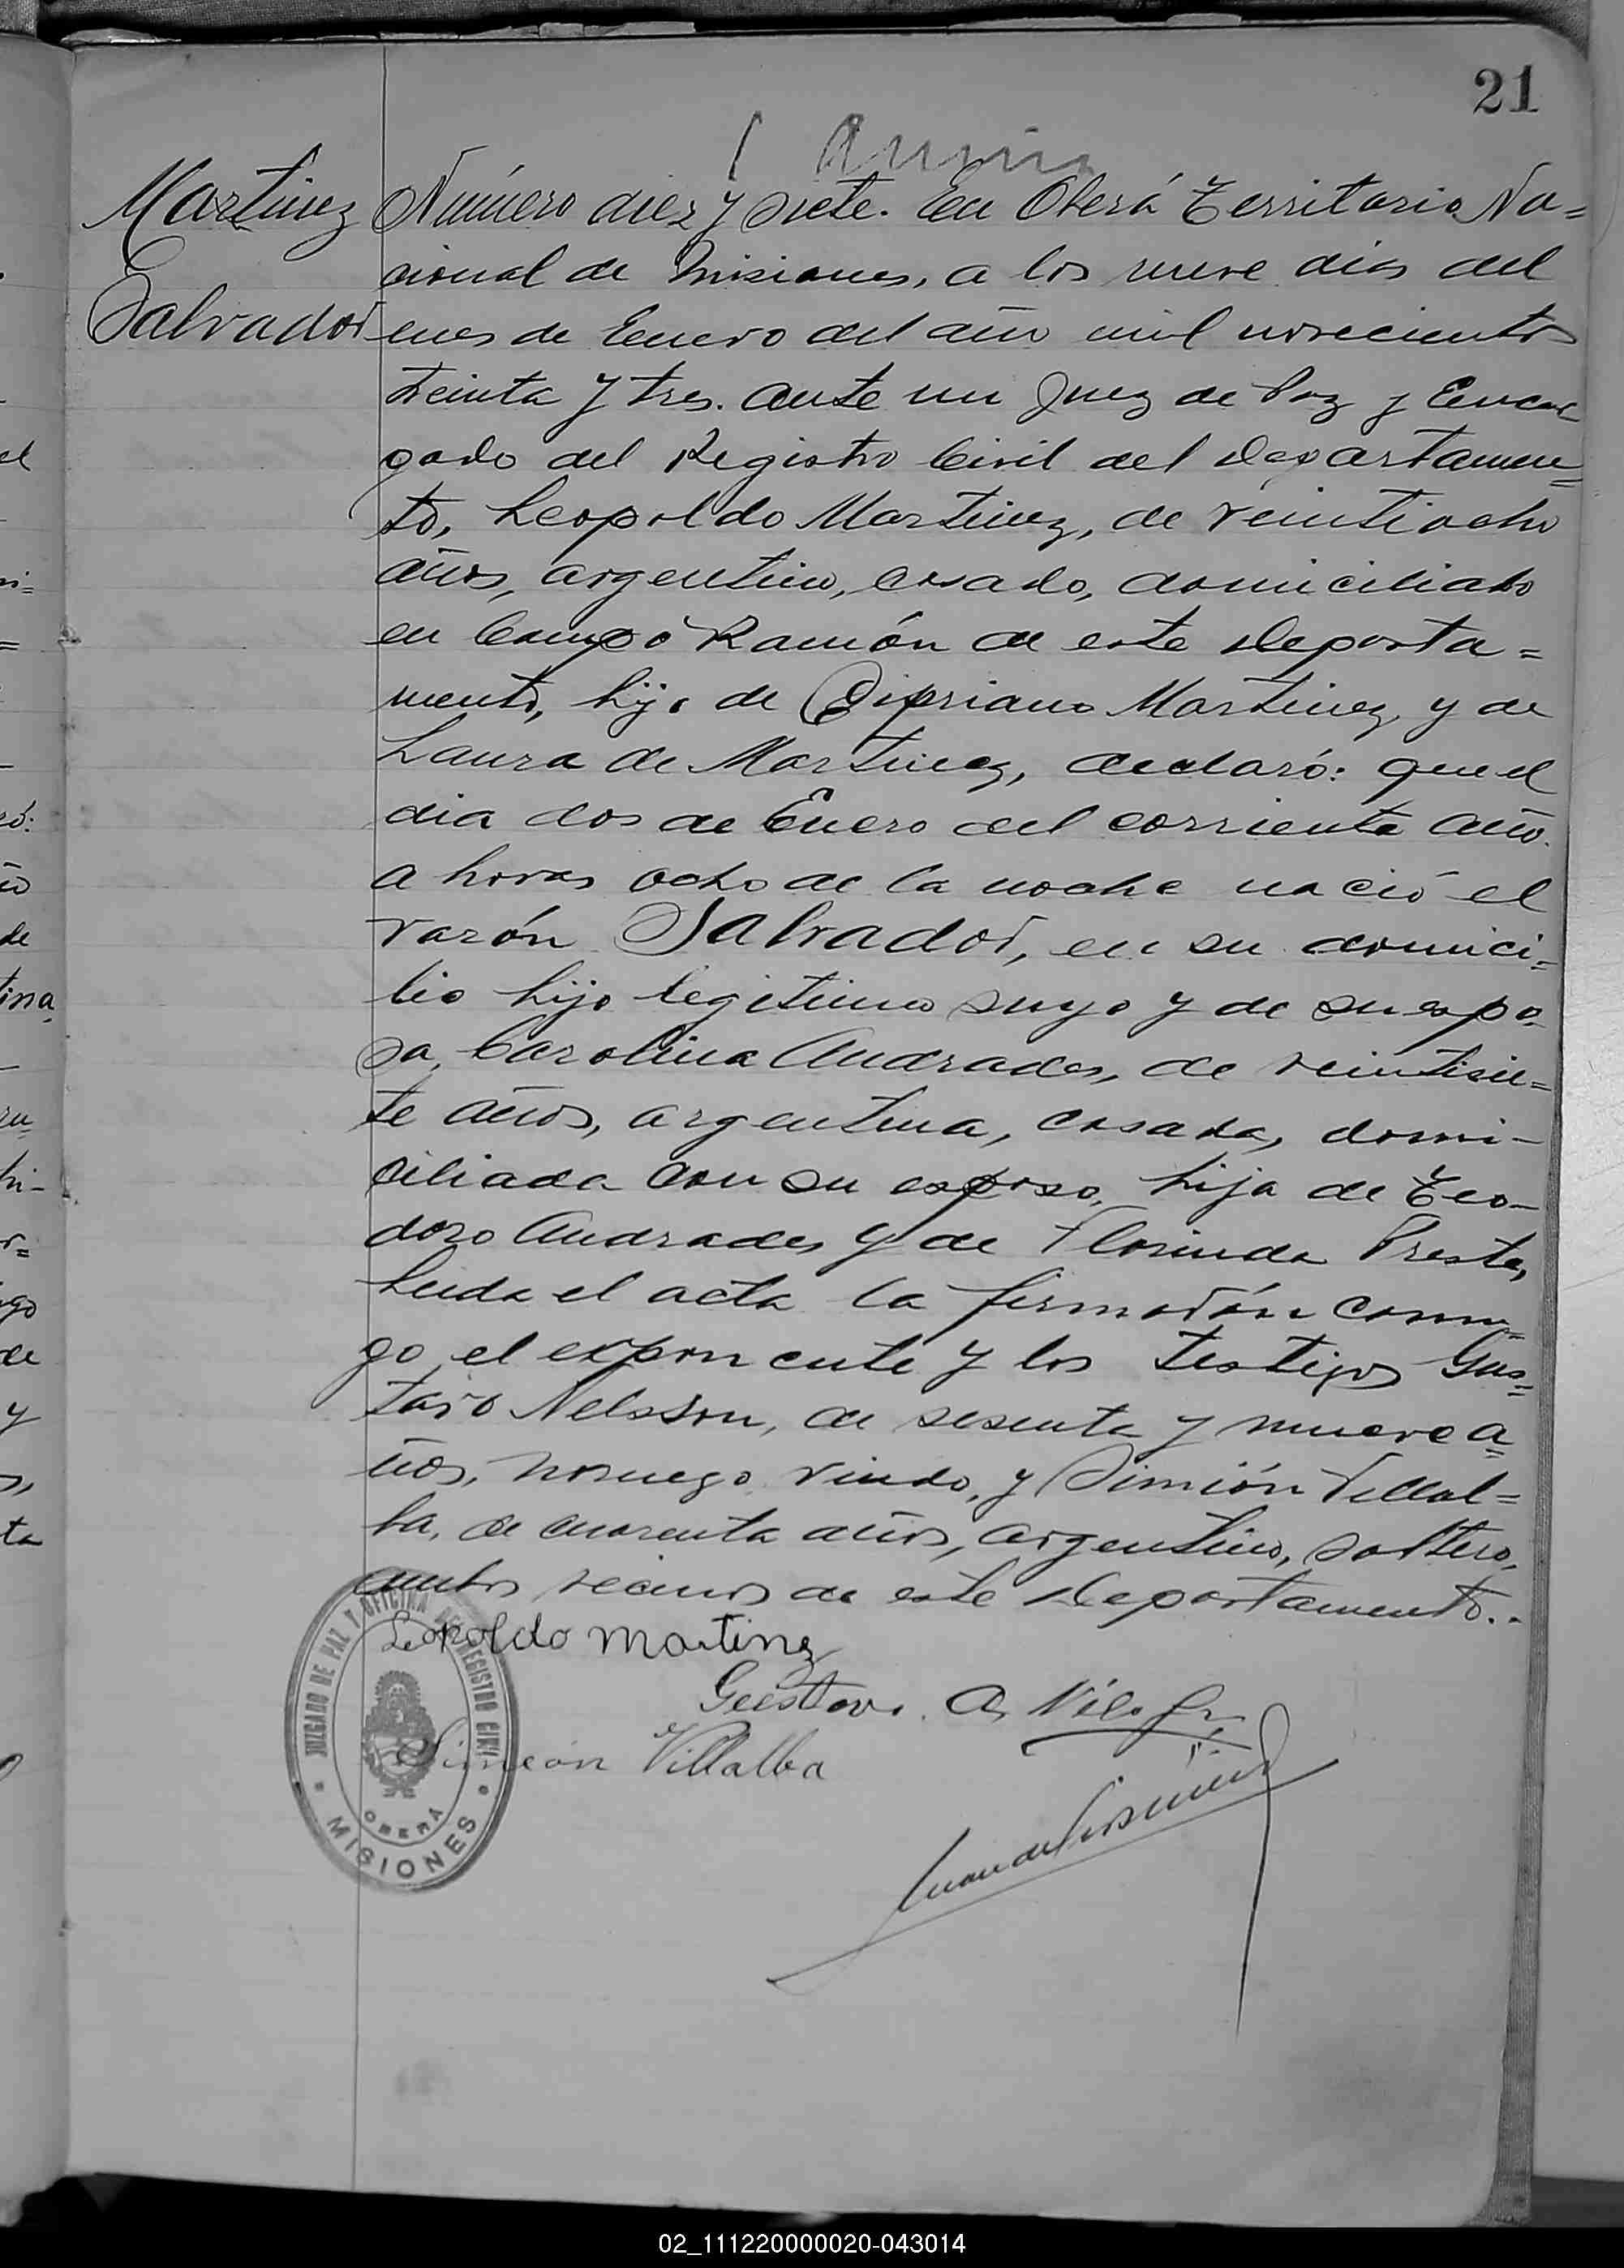 21
Martinez
Salvador
Número diez y siete. En Oberá Territorio Na=
cional de Misiones, a los nueve dias del
mes de Enero del año mil novecientos
treinta y tres. ante mi Juez de Paz y Encar=
gado del Registro Civil del Departamen=
to, Leopoldo Martinez, de veintiocho
años, argentino, casado, domiciliado
en Campo Ramón de este Departa=
mento, hijo de Cipriano Martinez, y de
Laura de Martinez, declaró: que el
dia dos de Enero del corriente año.
a horas ocho de la noche nació el
varón Salvador, en su domici=
lio hijo legitimo suyo y de su espo=
sa, Carolina Andrades, de veintisie=
te años, argentina, casada, domi-
ciliada con su esposo, hija de Teo-
doro Andrades y de Florinda Preste,
Leida el acta la firmarón conmi=
go, el exponente y los testigos Gus=
tavo Nelsson, de sesenta y nueve a=
ños, noruego, viudo, y Simión Villal=
ba, de cuarenta años, argentino, soltero,
ambos vecinos de este Departamento..
Leopoldo Martinez
Gustavo. A,
Simeón Villalba
JUZGADO DE PAZ Y OFICINA DEL REGISTRO CIVIL
OBERÁ
MISIONES
02_111220000020-043014